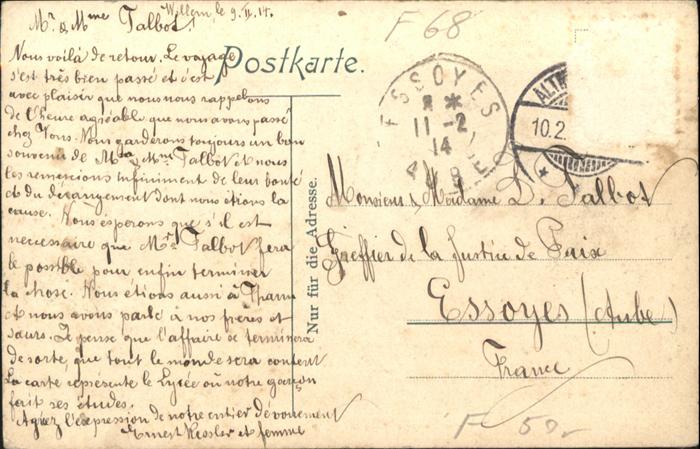 Willern le 9. II. 14.
Mr. & Mme Talbot!
Nous voilà de retour. Le voyage
s'est très bien passé et c'est
avec plaisir que nous nous rappelons
de l'heure agréable que nous avons passé
chez Vous. Nous garderons toujours un bon
souvenir de Mr. & Mme Talbot et nous
les remercions infiniment de leur bonté
et du dérangement dont nous étions la
cause. Nous espérons que s'il est
necessaire que Mr. Talbot fera
le possible pour enfin terminer
la chose. Nous étions aussi à Thann
et nous avons parlé à nos frères et
sœurs. Je pense que l'affaire se terminera
de sorte, que tout le monde sera content
La carte représente le Lycée où notre garçon
fait ses études.
Agréez l'expression de notre entier dévouement
Ernest Kessler et femme
Postkarte.
Nur für die Adresse.
F 68
ESSOYES
11 -2
14
AUBE
ALTK
10.2
Monsieur & Madame D. Talbot
Greffier de la Justice de Paix
Essoyes (Aube)
France
F 50.-